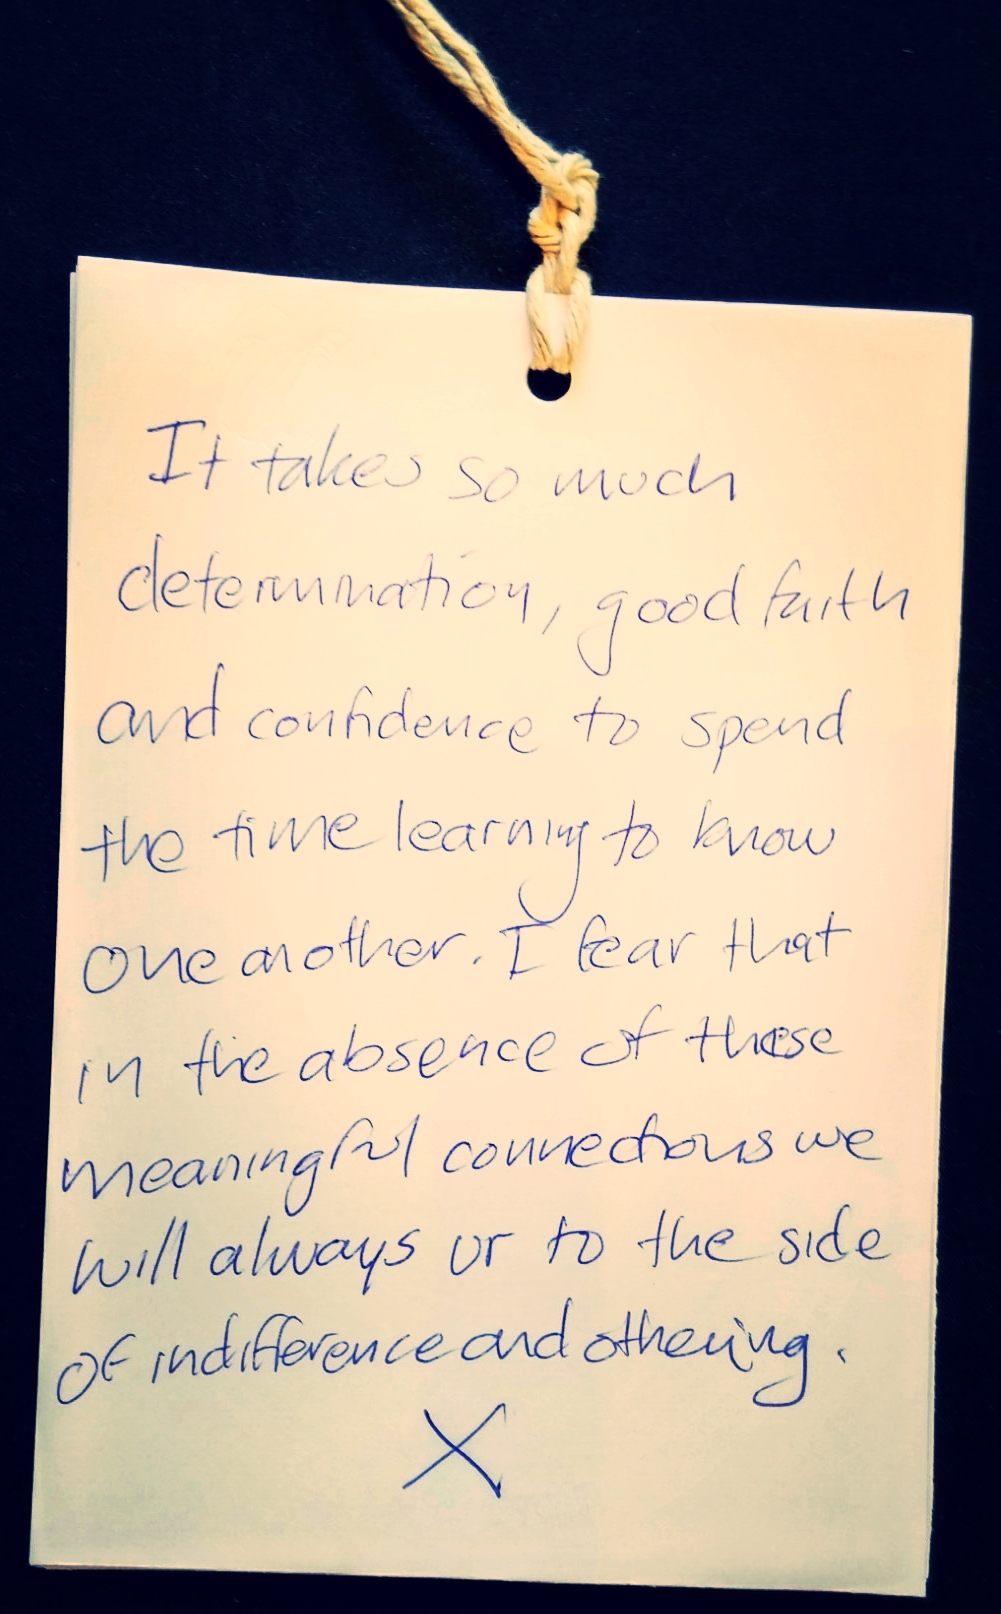 It takes so much
determination, good faith
and confidence to spend
the time learning to know
one another. I fear that
in the absence of these
meaningful connections we
will always ur to the side
of indifference and othering.
X